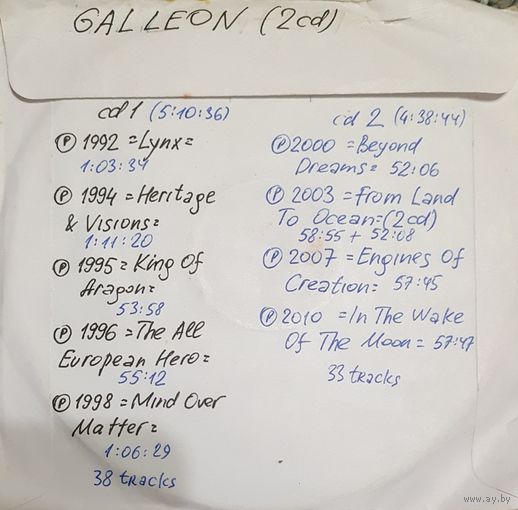 GALLEON (2cd)
cd 1 (5:10:36)
Ⓟ 1992 =Lynx=
1:03:34
Ⓟ 1994 =Heritage
& Visions=
1:11:20
Ⓟ 1995= King Of
Aragon=
53:58
Ⓟ 1996 =The All
European Hero=
55:12
Ⓟ 1998 =Mind Over
Matter=
1:06:29
38 tracks
cd 2 (4:38:44)
Ⓟ 2000 =Beyond
Dreams= 52:06
Ⓟ 2003 =From Land
To Ocean=(2cd)
58:55 + 52:08
Ⓟ 2007 =Engines Of
Creation= 57:45
Ⓟ 2010 =In The Wake
Of The Moon= 57:47
33 tracks
www.ay.by